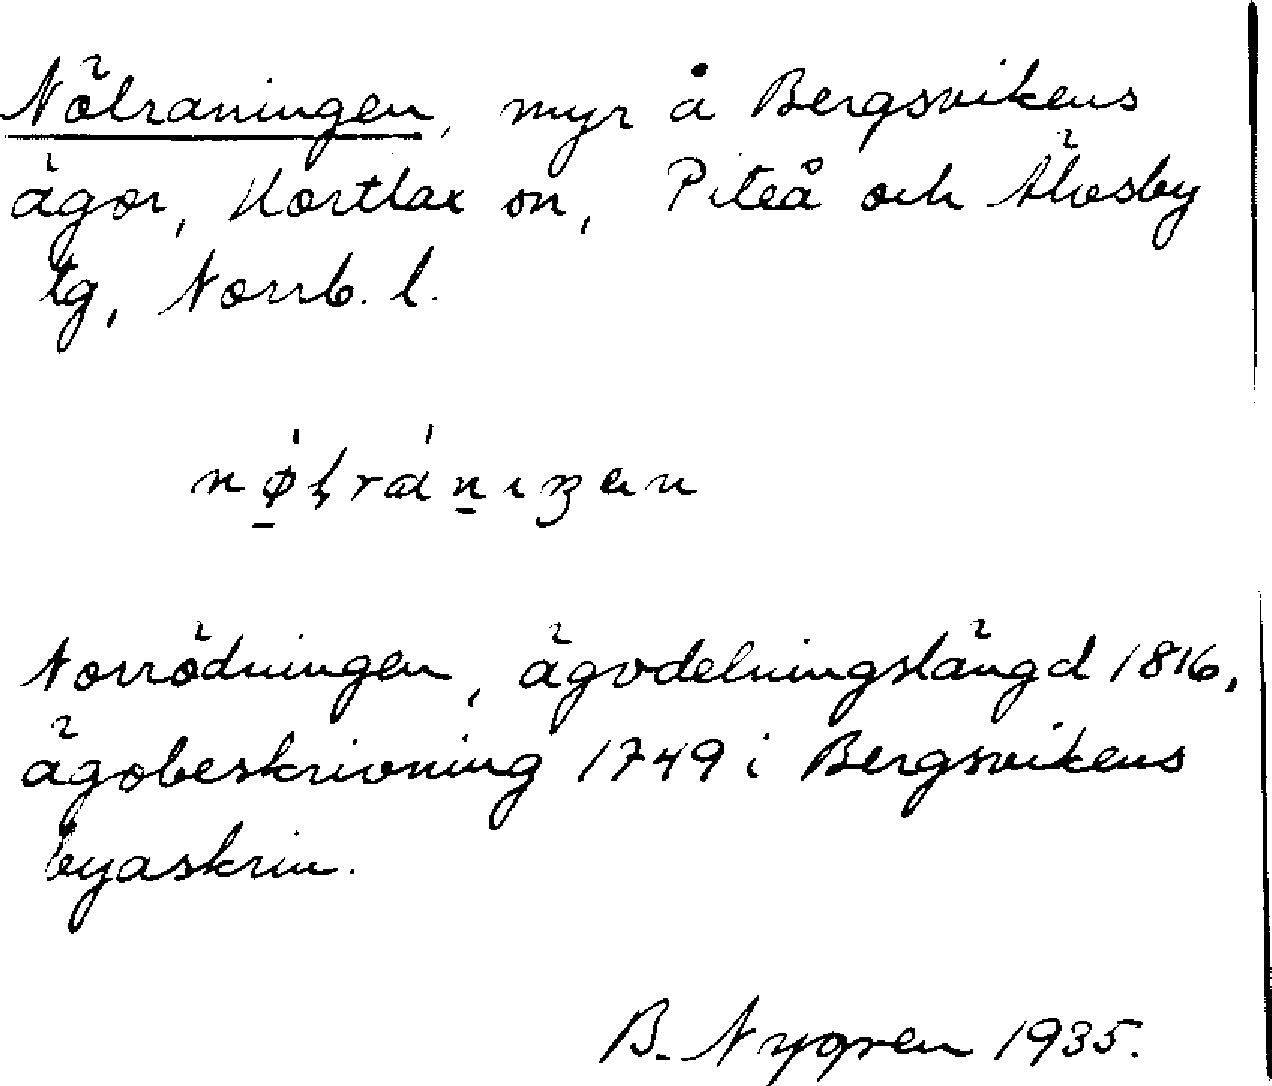 Nölraningen, myr å Bergsvikens
ägor, Hortlax sn, Piteå och Älvsby
tg, Norrb. l.
nø̠lránıŋen
Norrödningen, ägodelningslängd 1816,
ägobeskrivning 1749 i Bergsvikens
byaskrin.
B. Nygren 1935.